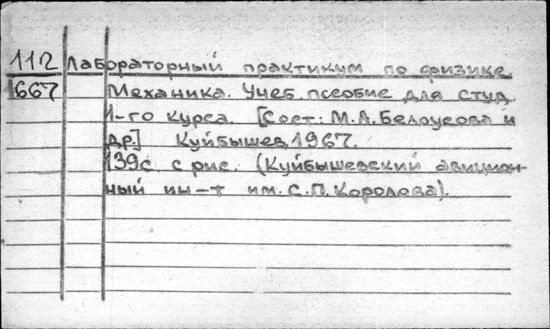 112 Лабораторный практикум по физике
667 Механика. Учеб. пособие для студ.
1-го курса. [Сост.: М.А. Белоусова и
др.] Куйбышев, 1967.
139с. с рис. (Куйбышевский авицион-
ный ин-т им. С.П. Королова).